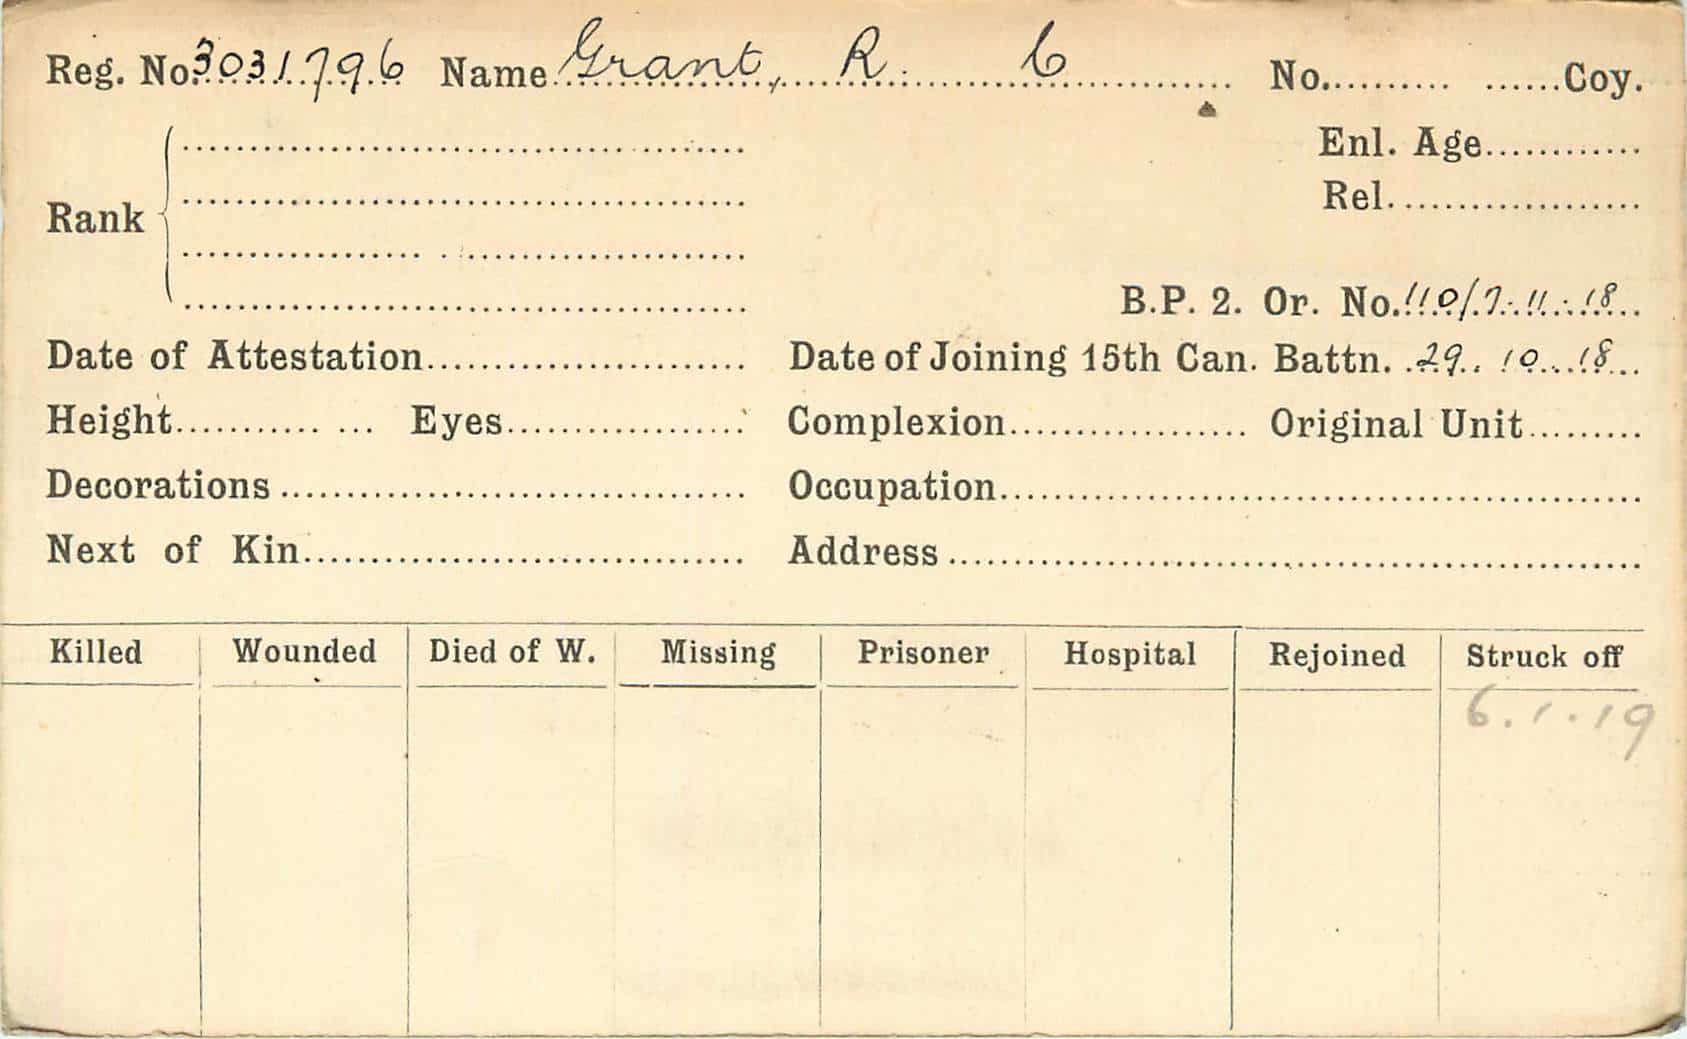 Reg. No. 3031796 Name Grant, R. C No. Coy.
Enl. Age
Rel.
Rank
B.P. 2. Or. No. 110/7.11.18
Date of Attestation Date of Joining 15th Can. Battn. 29.10.18
Height Eyes Complexion Original Unit
Decorations Occupation
Next of Kin Address
Killed Wounded Died of W. Missing Prisoner Hospital Rejoined Struck off
6.1.19